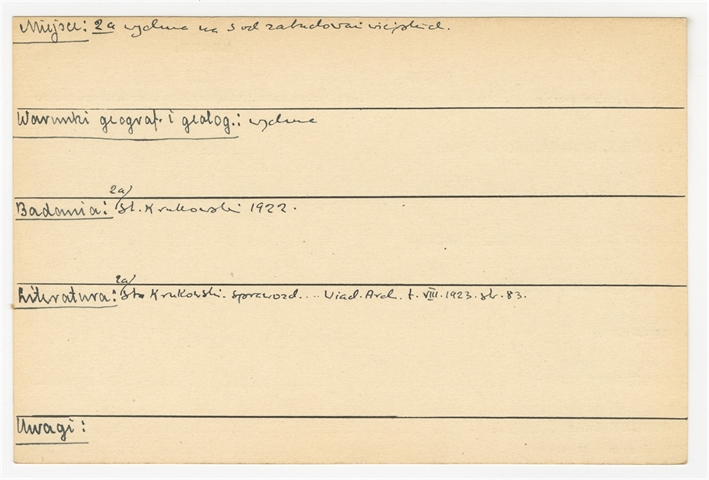 Miejsce: 2a wydma na S od zabudowań wiejskich.
Warunki geograf. i geolog.: wydma
2a)
Badania: St. Krukowski 1922.
2a)
Literatura: St. Krukowski. Sprawozd.... Wiad. Arch. t. VIII. 1923. str. 83.
Uwagi: